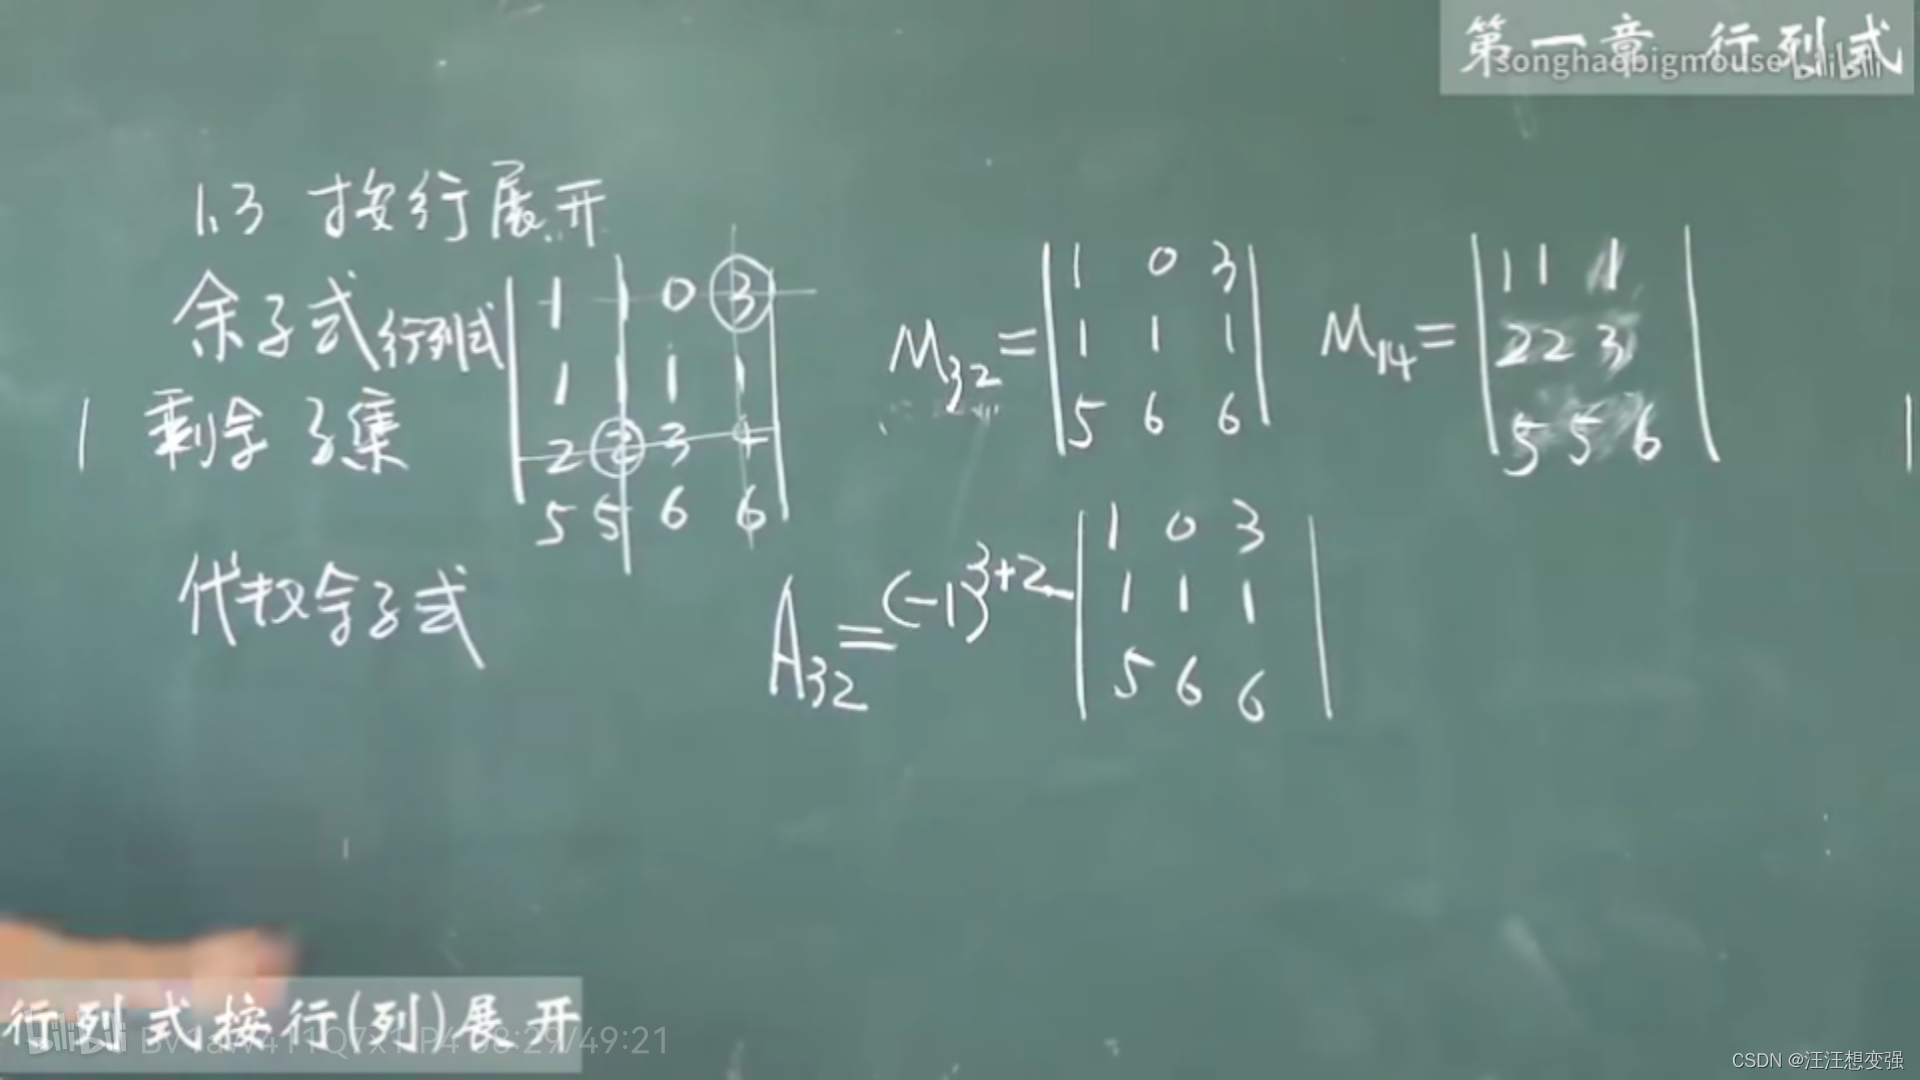 第一章 行列式
songhaobigmouse bilibili
1.3 按行展开
余子式 行列式
1 1 0 3
1 1 1 1
2 2 3 4
5 5 6 6
M32=
1 0 3
1 1 1
5 6 6
M14=
1 1 1
2 2 3
5 5 6
1 剩余子集
代数余子式
A32=(-1)^3+2
1 0 3
1 1 1
5 6 6
行列式按行(列)展开
bilibili
49:21
CSDN @汪汪想变强